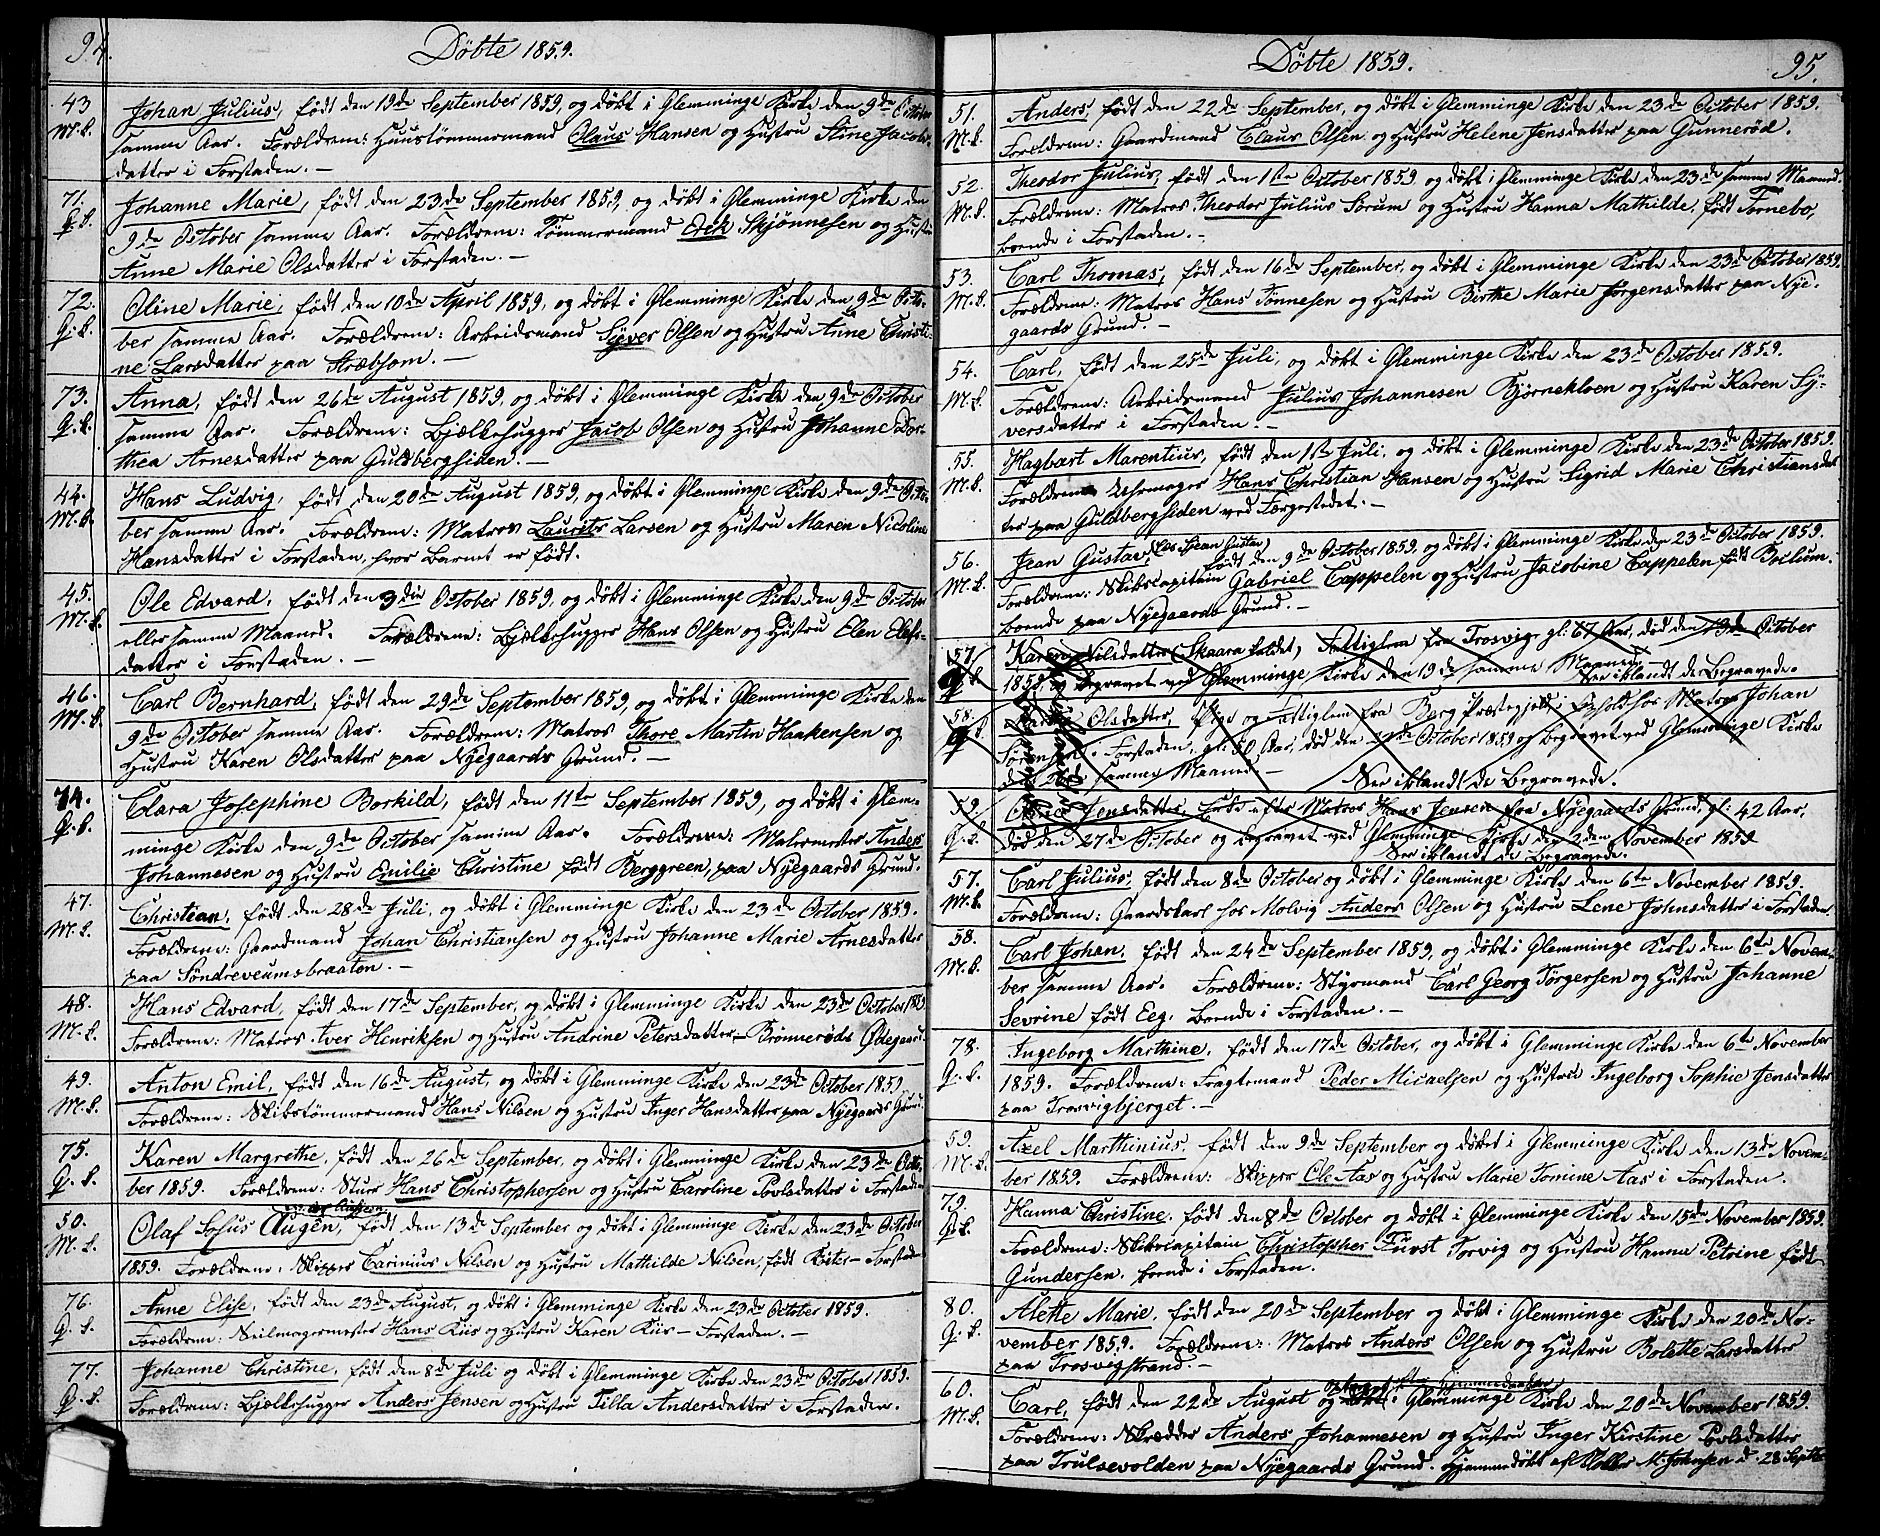 94.
Döbte 1859.
43 Johan Julius, født den 19de September 1859, og døbt i Glemminge Kirke den 9de October
M.k. samme Aar. Forældrene: Huustømmermand Olaus Hansen og Hustru Stine Jacobs-
datter i Forstaden. –
71. Johanne Marie, født den 23de September 1859, og døbt i Glemminge Kirke den
Q.k. 9de October samme Aar. Forældrene: Tømmermand Erik Skjønnesen og Hustru
Anne Marie Olsdatter i Forstaden. –
72. Oline Marie, født den 10de April 1859, og døbt i Glemminge Kirke den 9de Octo-
Q.k. ber samme Aar. Forældrene: Arbeidsmand Syver Olsen og Hustru Anne Christi-
ne Larsdatter paa Stræbsom. –
73. Anna, født den 26de August 1859, og døbt i Glemminge Kirke den 9de October
Q.k. samme Aar. Forældrene: Bjælkehugger Jacob Olsen og Hustru Johanne Dor-
thea Arnesdatter paa Guldbergsiden. –
44. Hans Ludvig, født den 20de August 1859, og døbt i Glemminge Kirke den 9de Octo-
M.k. ber samme Aar. Forældrene: Matros Laurits Larsen og Hustru Maren Nicoline
Hansdatter i Forstaden, hvor Barnet er født.
45. Ole Edvard, født den 3die October 1859, og døbt i Glemminge Kirke den 9de October
M.k. eller samme Maaned. Forældrene: Bjælkehugger Hans Olsen og Hustru Elen Elefs-
datter i Forstaden. –
46. Carl Bernhard, født den 29de September 1859, og døbt i Glemminge Kirke den
M.k. 9de October samme Aar. Forældrene: Matros Thore Martin Haakensen og
Hustru Karen Olsdatter paa Nyegaards Grund. –
74. Clara Josephine Borkild, født den 11te September 1859, og døbt i Glem-
Q.k. minge Kirke den 9de October samme Aar. Forældrene: Malermester Anders
Johannesen og Hustru Emilie Christine født Berggreen, paa Nyegaards Grund.
47. Christian, født den 28de Juli, og døbt i Glemminge Kirke den 23de October 1859.
M.k. Forældrene: Gaardmand Johan Christiansen og Hustru Johanne Marie Arnesdatter
paa Søndreveumsbraaten. –
48. Hans Edvard, født den 17de September, og døbt i Glemminge Kirke den 23de October 1859
M.k. Forældrene: Matros Iver Henriksen og Hustru Andrine Petersdatter – Brønnerøds Ødegaard.
49. Anton Emil, født den 16de August, og døbt i Glemminge Kirke den 23de October 1859.
M.k. Forældrene: Skibstømmermand Hans Nilsen og Hustru Inger Hansdatter paa Nyegaards Grund.
75. Karen Margrethe, født den 26de September, og døbt i Glemminge Kirke den 23de Octo-
Q.k. ber 1859. Forældrene: Stuer Hans Christophersen og Hustru Caroline Povlsdatter i Forstaden
50. Olaf Losius Augen, født den 13de September og døbt i Glemminge Kirke den 23de October
M.k. 1859. Forældrene: Skipper Carinius Nilsen og Hustru Mathilde Nilsen, født Röter – Forstaden
76. Anne Elise, født den 23de August, og døbt i Glemminge Kirke den 23de October 1859.
Q.k. Forældrene: Seilmagermester Hans Kiis og Hustru Karen Kiis – Forstaden. –
77. Johanne Christine, født den 8de Juli og døbt i Glemminge Kirke den 23de October 1859.
Q.k. Forældrene: Bjælkehugger Anders Jensen og Hustru Tilla Andersdatter i Forstaden.
Döbte 1859.
95.
51. Anders, født den 22de September, og døbt i Glemminge Kirke den 23de October 1859.
M.k. Forældrene: Gaardmand Claus Olsen og Hustru Helene Jensdatter paa Gunnerød.
52. Theodor Julius, født den 1ste October 1859 og døbt i Glemminge Kirke den 23de samme Maaned.
M.k. Forældrene: Matros Theodor Julius Sørum og Hustru Hanna Mathilde, født Tornebo,
boende i Forstaden. –
53. Carl Thomas, født den 16de September, og døbt i Glemminge Kirke den 23de October 1859.
M.k. Forældrene: Matros Hans Tønnesen og Hustru Birthe Marie Jørgensdatter paa Nye-
gaards Grund. –
54. Carl, født den 25de Juli, og døbt i Glemminge Kirke den 23de October 1859.
M.k. Forældrene: Arbeidsmand Julius Johannesen Bjørnekloen og Hustru Karen Sy-
versdatter i Forstaden. –
55. Hagbart Marentius, født den 1ste Juli, og døbt i Glemminge Kirke den 23de October 1859.
M.k. Forældrene Uhrmager Hans Christian Hansen og Hustru Sigrid Marie Christiansdat
ter paa Guldbergsiden ved Færgestedet. –
56. Jean Gustav, (læs Sjean Gustav) født den 9de October 1859, og døbt i Glemminge Kirke den 23de October 1859.
M.k. Forældrene: Skibscapitain Gabriel Cappelen og Hustru Jacobine Cappelen født Boilum.
boende paa Nyegaards Grund. –
57. Karen Nilsdatter (Skaara kaldet) Fattiglem fra Trosvig, gl: 67 Aar, død den 13de October
Q.k. 1859, og begravet ved Glemminge Kirke den 19de samme Maaned.
See iblandt de Begravede.
58. Olsdatter, Pige og Fattiglem fra Berg Præstegjeld i Ophold hos Matros Johan
Sørensen i Forstaden, gl: 50 Aar, død den October 1859 og begravet ved Glemminge Kirke
den samme Maaned. – See iblandt de Begravede.
59. Jensdatter, Enke efter Matros Hans Jensen fra Nyegaards Grund, gl: 42 Aar,
Q.k. død den 27de October og begravet ved Glemminge Kirke den 2den November 1859
See iblandt de Begravede.
57. Carl Julius, født den 8de October og døbt i Glemminge Kirke den 6te November 1859.
M.k. Forældrene: Gaardskarl hos Molvig Anders Olsen og Hustru Lene Johnsdatter i Forstaden.
58. Carl Johan, født den 24de September 1859, og døbt i Glemminge Kirke den 6te Novem-
M.k. ber samme Aar. Forældrene: Styrmand Carl Georg Jørgersen og Hustru Johanne
Sevrine født Eeg, boende i Forstaden. –
78. Ingeborg Marthine, født den 17de October, og døbt i Glemminge Kirke den 6te November
Q.k. 1859. Forældrene: Fragtemand Peder Micaelsen og Hustru Ingeborg Sophie Jensdatter
paa Trosvigbjerget. –
59. Axel Marthinius, født den 9de September og døbt i Glemminge Kirke den 13de Novem-
M.k. ber 1859. Forældrene: Skipper Ole Aas og Hustru Marie Tomine Aas i Forstaden.
79. Hanna Christine, født den 8de October og døbt i Glemminge Kirke den 15de November 1859.
Q.k. Forældrene: Skibscapitain Christopher Fürst Torvig og Hustru Hanna Petrine født
Gundersen, boende i Forstaden.
80. Alette Marie, født den 20de September og døbt i Glemminge Kirke den 20de No-
Q.k. vember 1859. Forældrene: Matros Anders Olsen og Hustru Bolette Larsdatter
paa Trosvigstrand. –
60. Carl, født den 22de August og i Glemminge Kirke den 20de November 1859.
M.k. Forældrene: Skrædder Anders Johannesen og Hustru Inger Kirstine Povlsdatter
paa Trulsevolden paa Nyegaards Grund. Hjemmedøbt af Møller M. Johnsen d. 28 Septbr